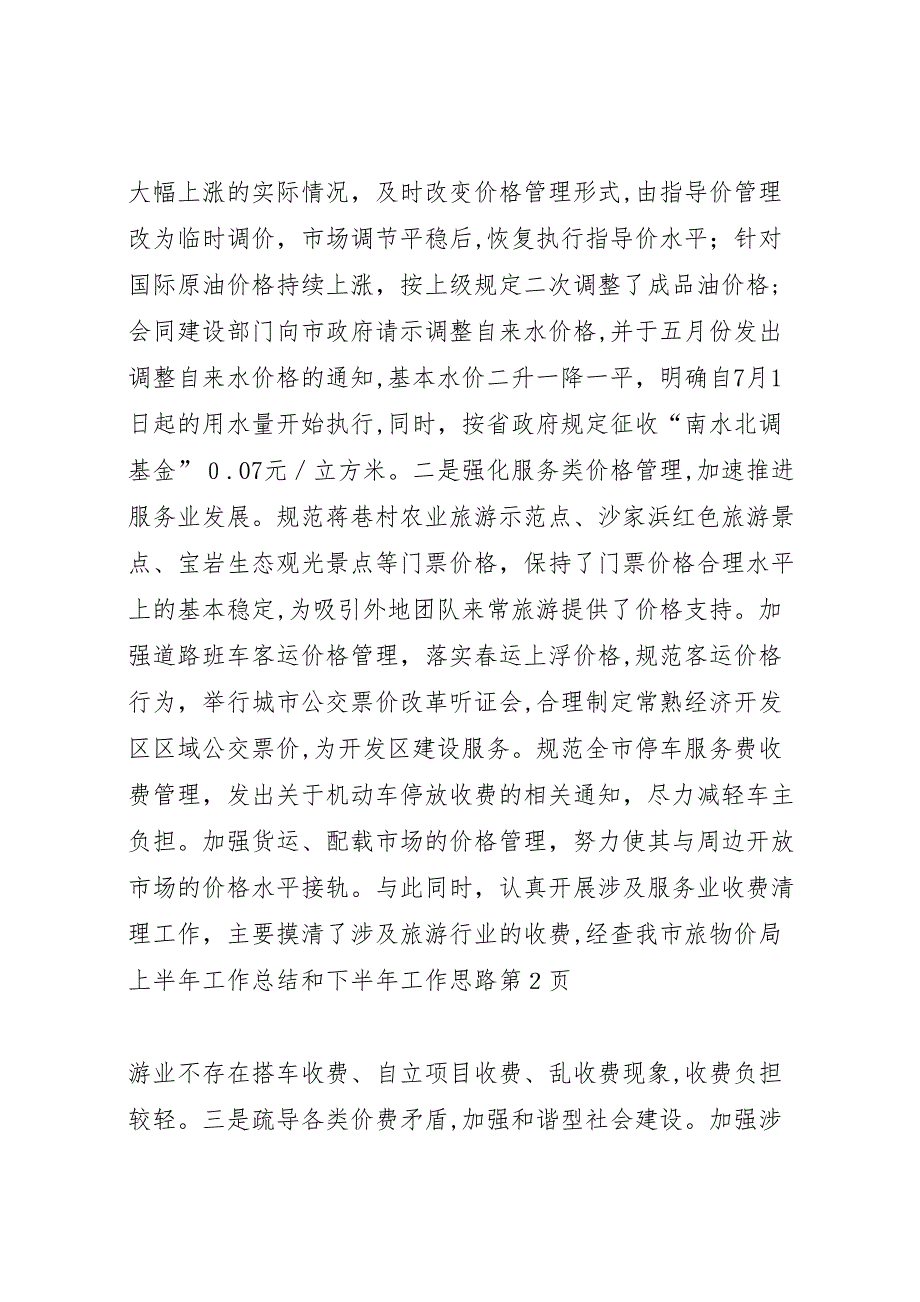 大幅上涨的实际情况，及时改变价格管理形式,由指导价管理
改为临时调价，市场调节平稳后,恢复执行指导价水平；针对
国际原油价格持续上涨，按上级规定二次调整了成品油价格;
会同建设部门向市政府请示调整自来水价格,并于五月份发出
调整自来水价格的通知,基本水价二升一降一平，明确自7月1
日起的用水量开始执行,同时，按省政府规定征收“南水北调
基金” 0.07元／立方米。二是强化服务类价格管理,加速推进
服务业发展。规范蒋巷村农业旅游示范点、沙家浜红色旅游景
点、宝岩生态观光景点等门票价格，保持了门票价格合理水平
上的基本稳定,为吸引外地团队来常旅游提供了价格支持。加
强道路班车客运价格管理，落实春运上浮价格,规范客运价格
行为，举行城市公交票价改革听证会,合理制定常熟经济开发
区区域公交票价,为开发区建设服务。规范全市停车服务费收
费管理，发出关于机动车停放收费的相关通知，尽力减轻车主
负担。加强货运、配载市场的价格管理，努力使其与周边开放
市场的价格水平接轨。与此同时，认真开展涉及服务业收费清
理工作，主要摸清了涉及旅游行业的收费,经查我市旅物价局
上半年工作总结和下半年工作思路第 2 页
游业不存在搭车收费、自立项目收费、乱收费现象,收费负担
较轻。三是疏导各类价费矛盾,加强和谐型社会建设。加强涉